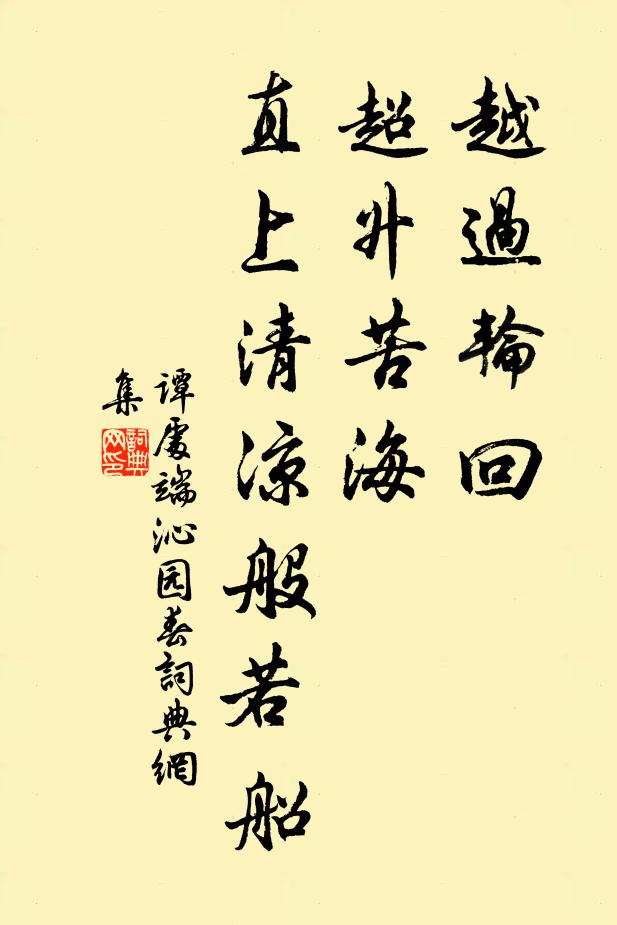 越過輪回
超升苦海
直上清凉般若船
譚處端沁园春詞典網
集
詞典
网印